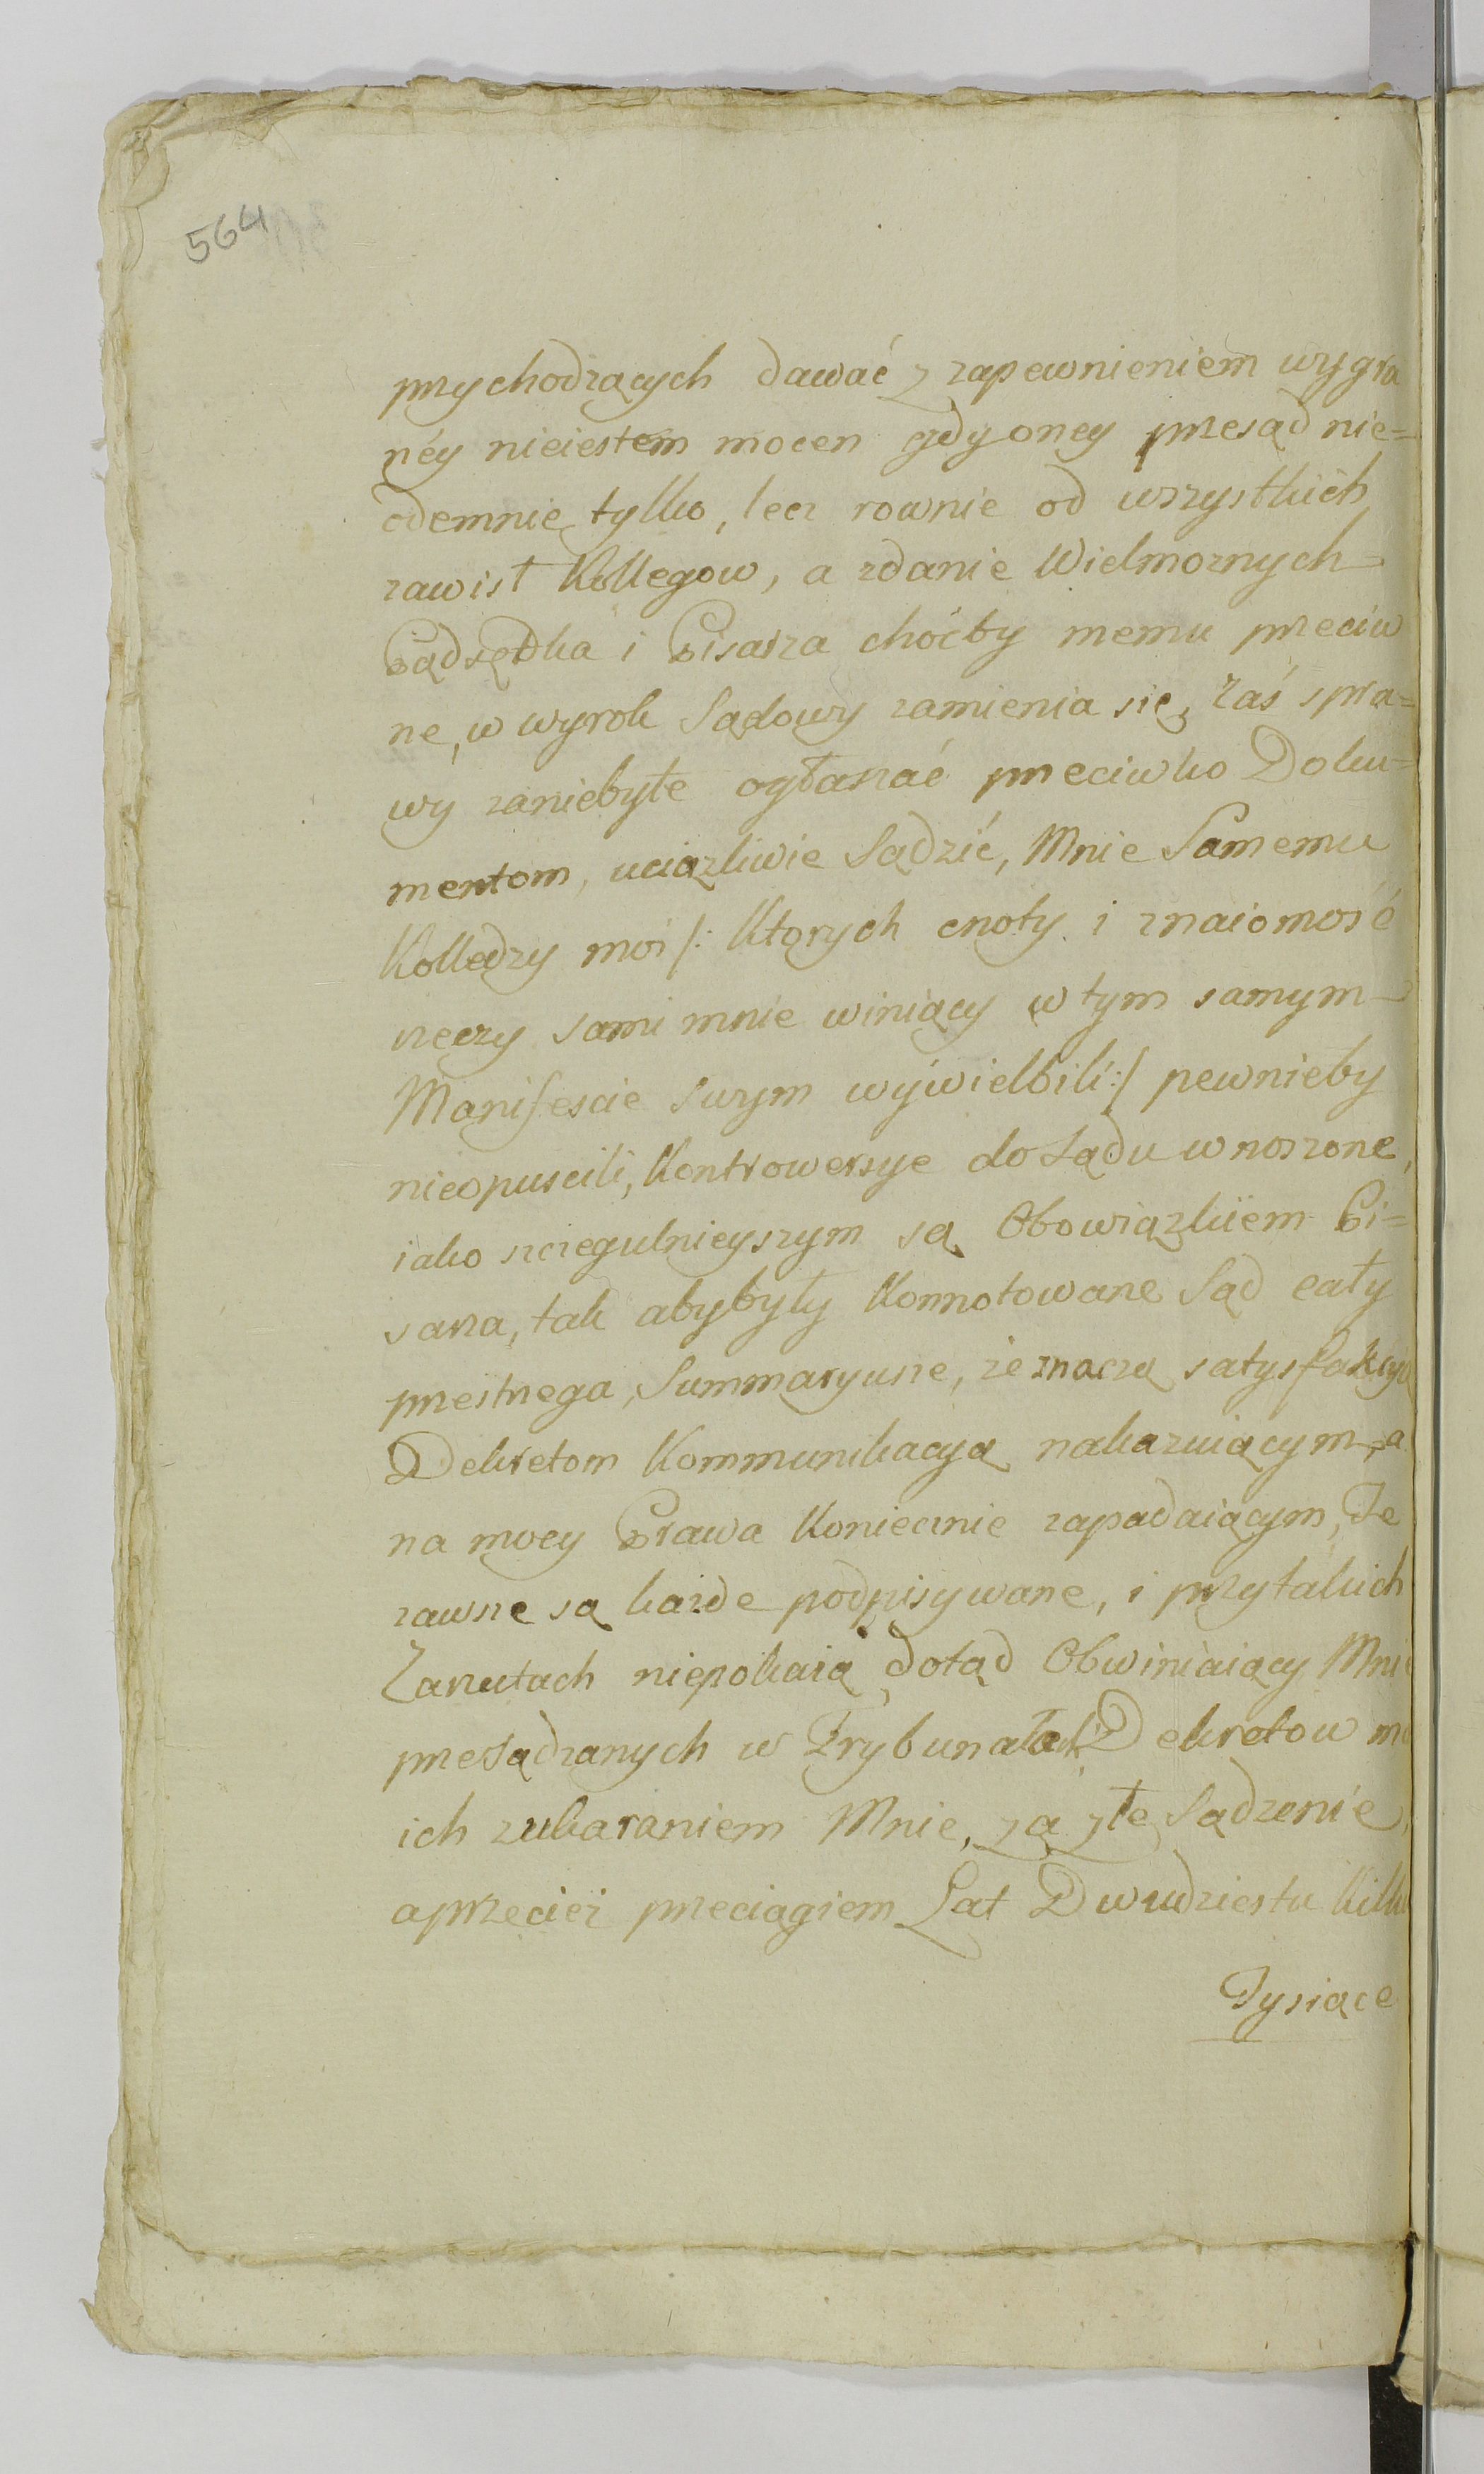 564
przychodzących dawać z zapewnieniem wygra
néy nieiestem mocen gdy oney przesąd nie=
odemnie tylko, lecz rownie od wszystkich
zawisł Kollegow, a zdanie Wielmoznych
Pądsędka i Pisarza choćby memu przeciw
ne, w wyrok Sądowy zamienia się, zaś spra=
wy zaniebyłe ogłaszać przeciwko Doku=
mentom, uciązliwie Sądzić, Mnie Samemu
Kolledzy moi /: Ktorych cnoty i znaiomość
rzeczy sami mnie winiący w tym samym
Manifescie Swym wywielbili :/ pewnieby
nieopuscili, Kontrowersye do Sądu wnoszone,
iako szczegulnieyszym są Obowiązkiem Pi=
sarza, tak abybyły Konnotowane Sąd cały
przestrzega, Summaryusze, że znaczą satysfakcyą
Dekretom Kommunikacyą nakazuiącym, a
na mocy Prawa Koniecznie zapadaiącym, Te
zawsze są kaide podpisywane, i przy takich
Zarzutach niepokażą dotąd Obwiniaiący Mnie
przesądzanych w Trybunałach Dekretow mo
ich z ukaraniem Mnie, za złe Sądzenie,
a przecież przeciągiem Lat Dwudziestu Kilku
Tysiące